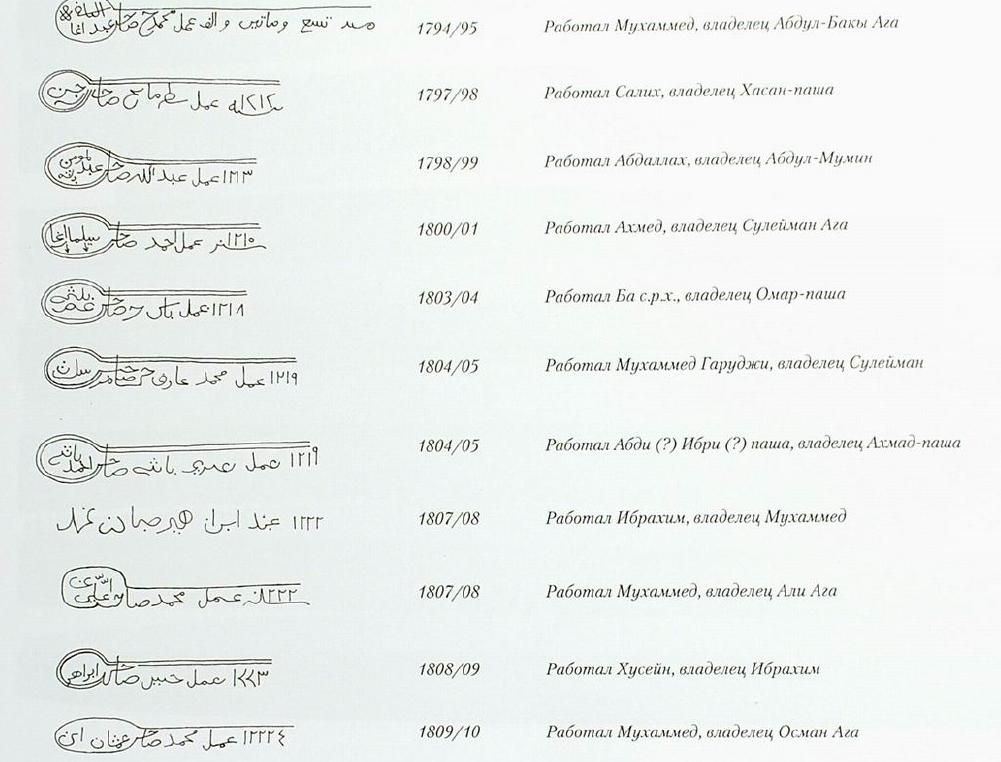 سنه تسع وماتين والف عمل محمد صاحب عبد الباقي اغا 1794/95 Работал Мухаммед, владелец Абдул-Бакы Ага
١٢١٢ عمل صاحب 1797/98 Работал Салих, владелец Хасан-паша
١٢١٣ عمل عبد الله صاحب عبد 1798/99 Работал Абдаллах, владелец Абдул-Мумин
١٢١٥ عمل احمد صاحب سليمان اغا 1800/01 Работал Ахмед, владелец Сулейман Ага
١٢١٨ عمل صاحب 1803/04 Работал Ба с.р.х., владелец Омар-паша
١٢١٩ عمل محمد صاحب 1804/05 Работал Мухаммед Гаруджи, владелец Сулейман
١٢١٩ عمل باشه صاحب احمد باشه 1804/05 Работал Абди (?) Ибри (?) паша, владелец Ахмад-паша
١٢٢٢ 1807/08 Работал Ибрахим, владелец Мухаммед
١٢٢٢ عمل محمد صاحب علي 1807/08 Работал Мухаммед, владелец Али Ага
١٢٢٣ عمل حسين صاحب ابراهيم 1808/09 Работал Хусейн, владелец Ибрахим
١٢٢٢٤ عمل محمد صاحب عثمان 1809/10 Работал Мухаммед, владелец Осман Ага